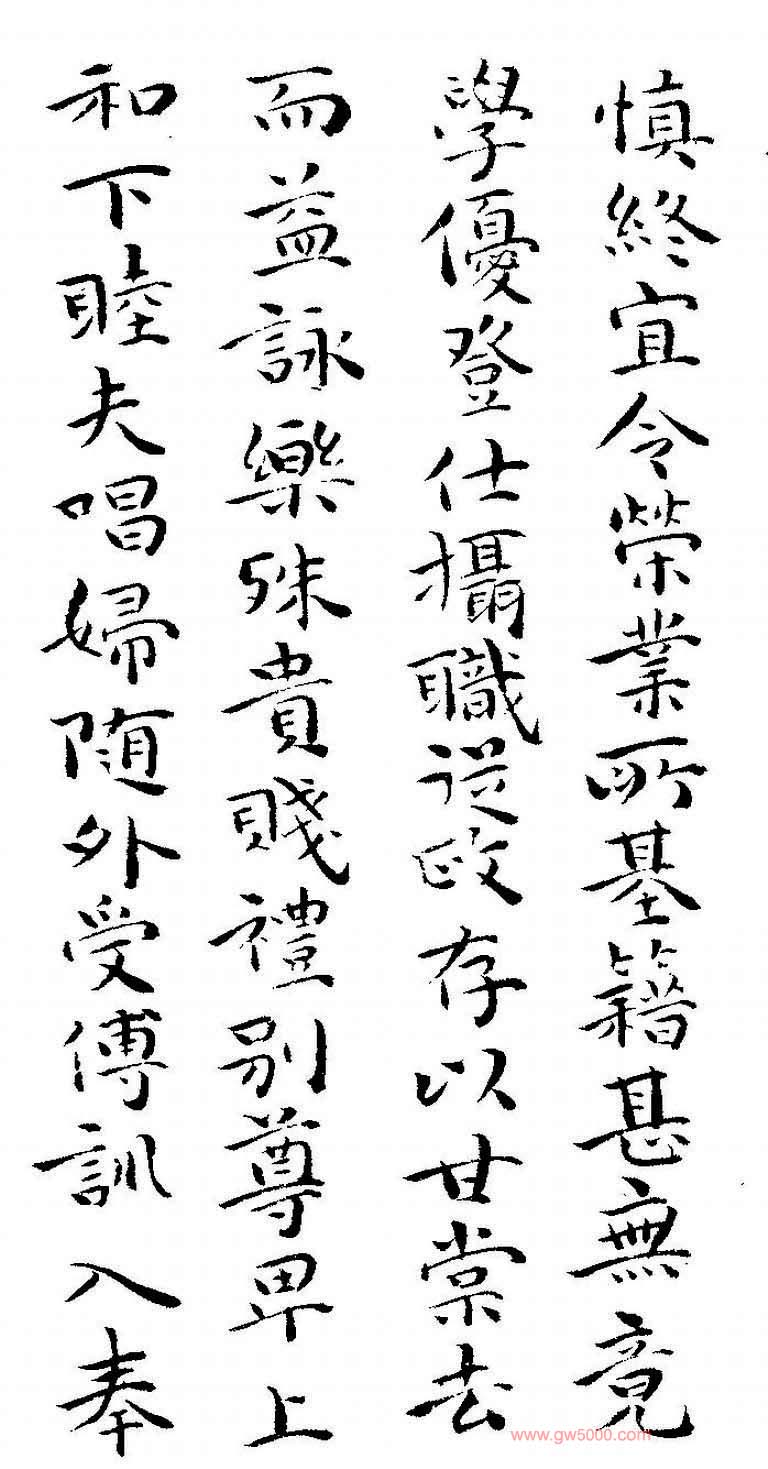 慎終宜令榮業所基籍甚無竟
學優登仕攝職從政存以甘棠去
而益詠樂殊貴賤禮別尊卑上
和下睦夫唱婦随外受傅訓入奉
www.gw5000.com